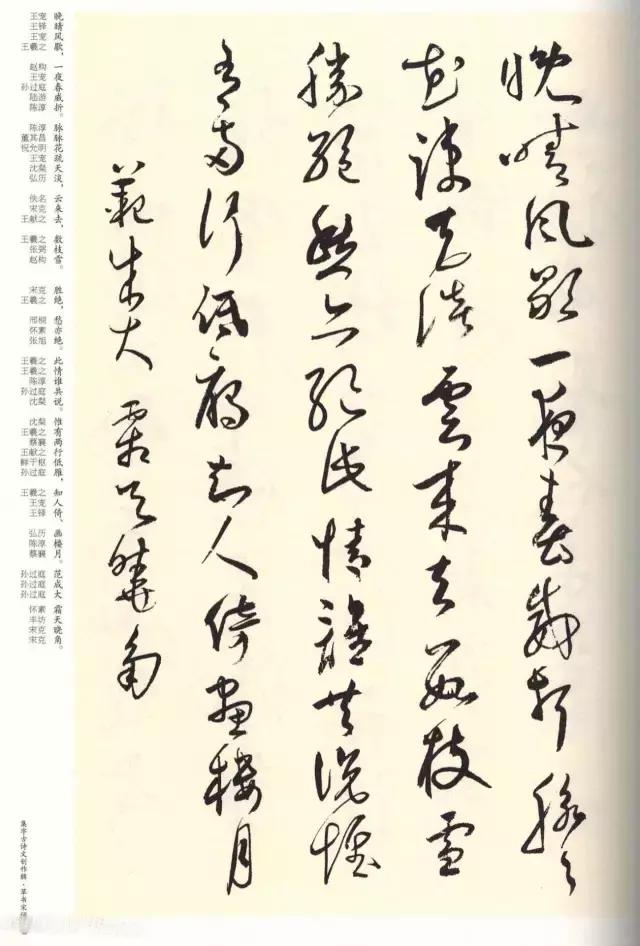 晚晴風歇一夜春威折脉々
花疎天淡雲来去數枝雪
勝絕愁亦絕此情誰共說惟
有兩行低雁知人倚畫樓月
範成大 霜天曉角
王宠 晚
王铎 晴
王宠 风
王羲之 歇，
赵构 一
王宠 夜
孙过庭 春
陆游 威
陈淳 折。
陈淳 脉
董其昌 脉
祝允明 花
王宠 疏
沈粲 天
弘历 淡，
佚名 云
宋克 来
王献之 去，
王羲之 数
张弼 枝
赵构 雪。
宋克 胜
王羲之 绝，
邢桐 愁
怀素 亦
张旭 绝。
王羲之 此
王羲之 情
陈淳 谁
孙过庭 共
沈粲 说。
沈粲 惟
王羲之 有
蔡襄 两
王献之 行
鲜于枢 低
孙过庭 雁，
王羲之 知
王宠 人
王铎 倚、
弘历 画
陈淳 楼
蔡襄 月。
孙过庭 范
孙过庭 成
孙过庭 大
怀素 霜
丰坊 天
宋克 晓
宋克 角。
集字古诗文创作辑·草书宋词